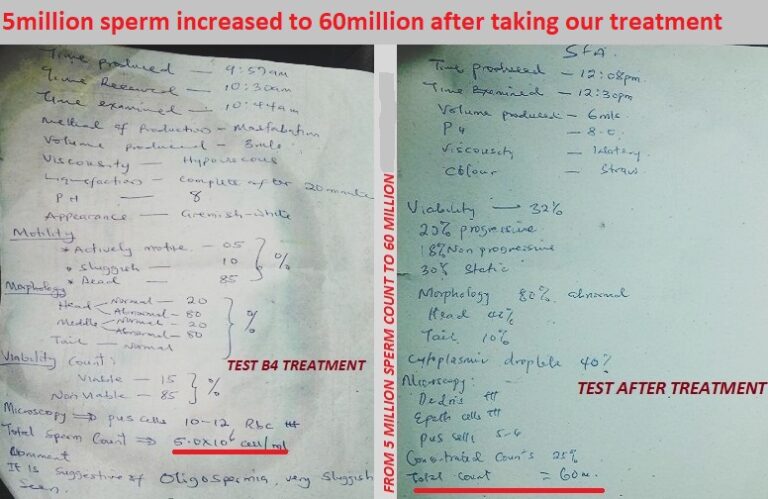 5million sperm increased to 60million after taking our treatment
Time produced — 9:57am
Time Received — 10:30am
Time examined — 10:44am
Method of Production — Mastabation
Volume produced — 3mls
Viscousity — Hypoviscous
Liquefaction — Complete after 20 minute
PH — 8
Appearance — Cremish-white
Motility
• Actively motive — 05
• Sluggish — 10
• Dead — 85
%
Morphology
Head Normal — 20
Abnormal — 80
Meddle Normal — 20
Abnormal — 80
Tail — Normal
%
Viability Count:
Viable — 15
Non Viable — 85
%
TEST B4 TREATMENT
Microscopy ⇒ pus cells 10-12 Rbc
Total Sperm Count ⇒ 5.0x10⁶ cell/ml
Comment
It is Suggestive of Oligospermia, very Sluggish
Seen.
FROM 5 MILLION SPERM COUNT TO 60 MILLION
SFA.
Time produced — 12:08pm
Time Examined — 12:30pm
Volume produced — 6mls
PH
Viscousity — Watery
Colour — Straw
Viability → 32%
20% progressive
18% Non progressive
30% Static
Morphology 80% abnormal
Head 42%
Tail 10%
Cytoplasmic droplete 40%
Microscopy:
Debris
Epeth cells
pus cells 5-6
Concentrated Count's 25%
Total Count = 60m.
TEST AFTER TREATMENT